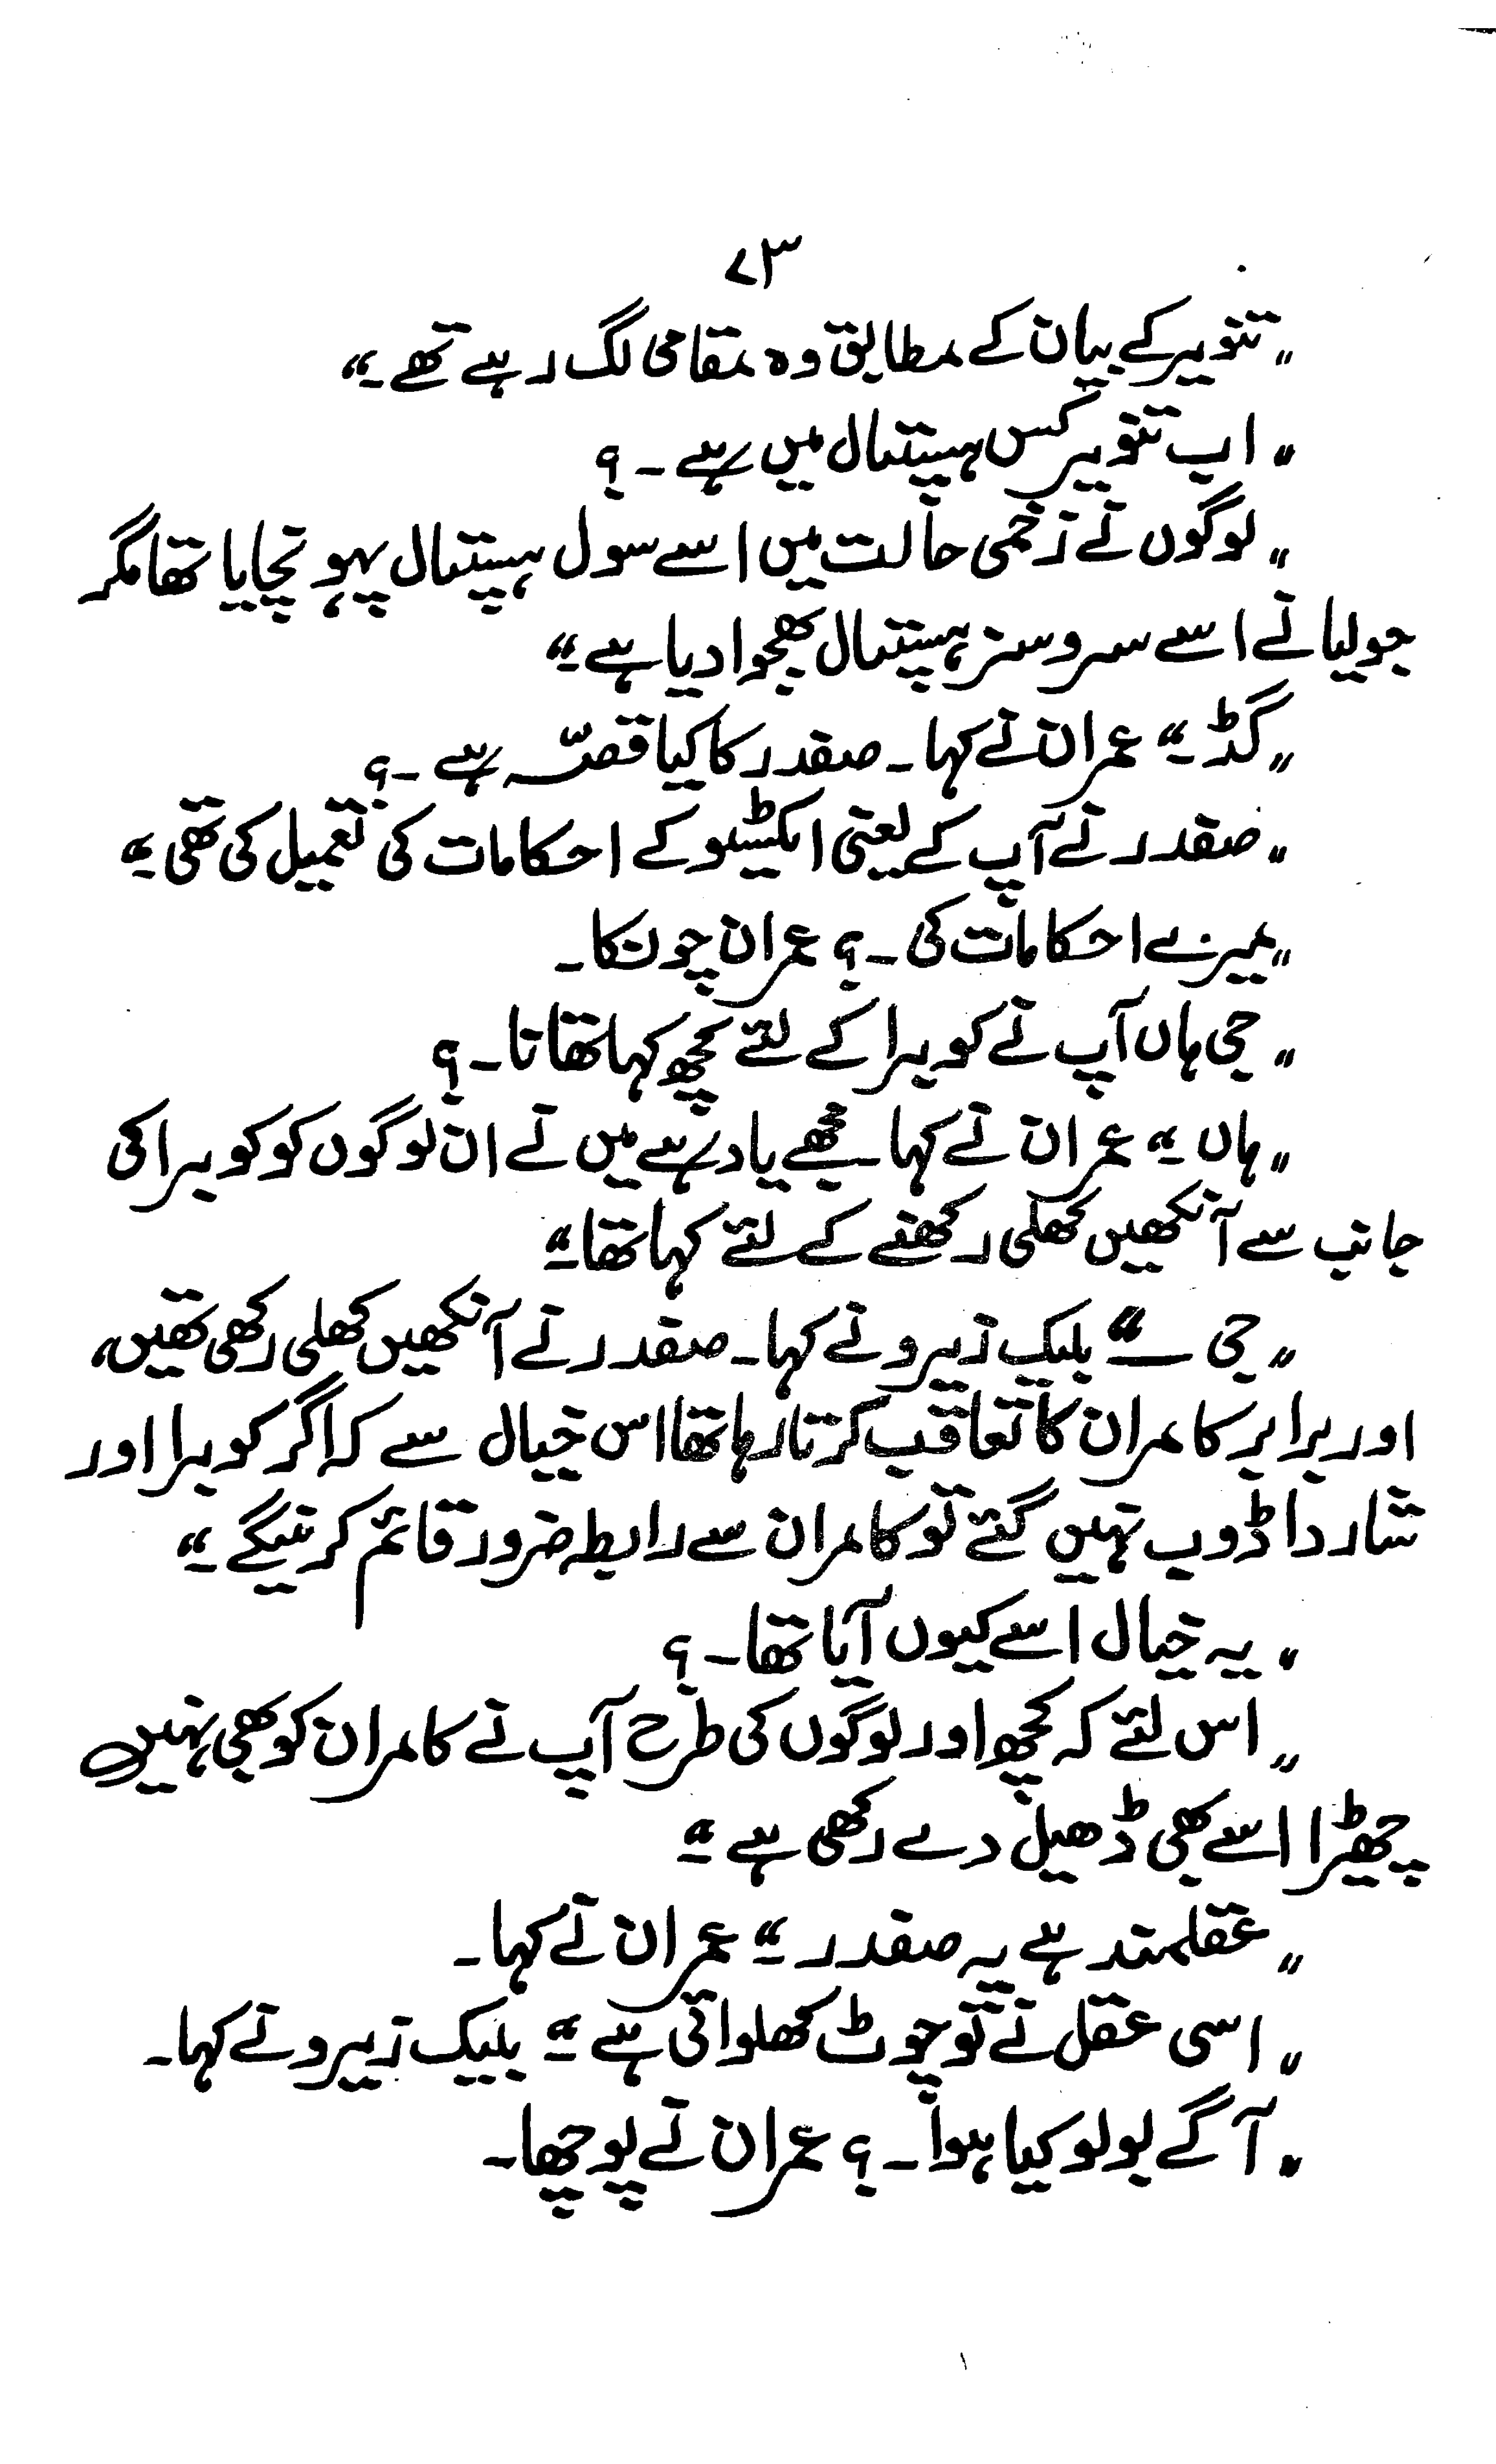 ۷۳
"تنویر کے بیان کے مطابق وہ مقامی لگ رہے تھے۔"
"اب تنویر کس ہسپتال میں ہے۔؟
"لوگوں نے زخمی حالت میں اسے سول ہسپتال پہونچایا تھا مگر
جولیا نے اسے سروسنر ہسپتال بھجوا دیا ہے"
"گڈ۔" عمران نے کہا۔ صفدر کا کیا قصّہ ہے۔؟
"صفدر نے آپ کے یعنی ایکسٹو کے احکامات کی تعمیل کی تھی۔"
"میرے احکامات کی۔؟ عمران چونکا۔
"جی ہاں آپ نے کوبرا کے لئے کچھ کہا تھا نا۔؟
"ہاں۔" عمران نے کہا۔ مجھے یاد ہے میں نے ان لوگوں کو کوبرا کی
جانب سے آنکھیں کھلی رکھنے کے لئے کہا تھا۔"
"جی —" بلیک زیرو نے کہا۔ صفدر نے آنکھیں کھلی رکھی تھیں،
اور برابر کامران کا تعاقب کرتا رہا تھا اس خیال سے کہ اگر کوبرا اور
شاردا ڈوب نہیں گئے تو کامران سے رابطہ ضرور قائم کرینگے۔"
"یہ خیال اسے کیوں آیا تھا۔؟
"اس لئے کہ کچھ اور لوگوں کی طرح آپ نے کامران کو بھی نہیں
چھیڑا اسے بھی ڈھیل دے رکھی ہے۔"
"عقلمند ہے یہ صفدر۔" عمران نے کہا۔
"اسی عقل نے تو چوٹ کھلوائی ہے۔" بلیک زیرو نے کہا۔
"آگے بولو کیا ہوا۔؟ عمران نے پوچھا۔